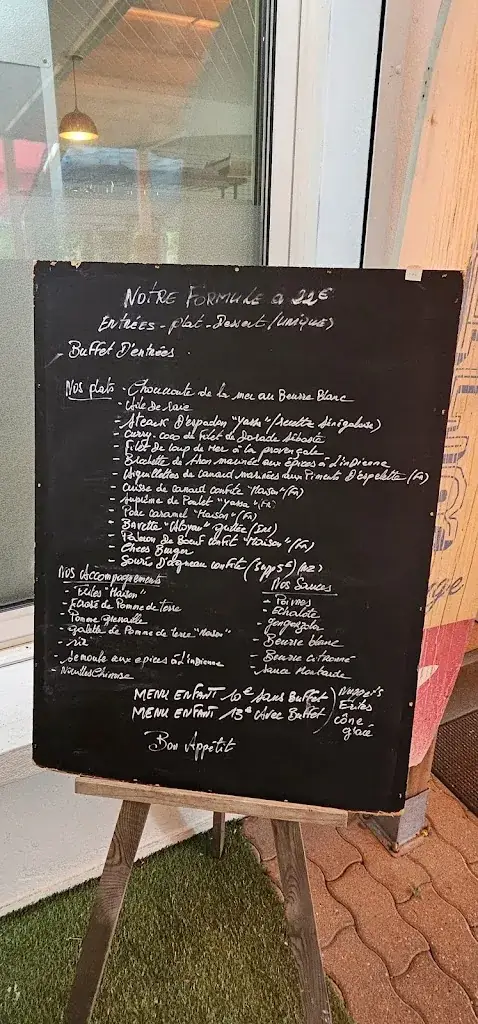 NOTRE FORMULE à 22€
ENTRÉES - plat - Dessert / (UNIQUE)
- Buffet D'entrées.
Nos plats - Choucroute de la mer au Beurre Blanc
- Aile de Raie
- Steack D'espadon "Yassa" / (recette Sénégalaise)
- Curry. coco de Filet de Dorade Sébaste
- Filet de Loup de Mer à la provençale
- Brochette de thon marinée aux épices à l'indienne
- Aiguillettes de canard marinées aux Piments D'espelette / (FR)
- Cuisse de canard confite "Maison" / (FR)
- Suprême de Poulet "Yassa" / (FR)
- Porc caramel "Maison" / (FR)
- Bavette "Aloyau" grillée / (
- Paleron de Boeuf confit "Maison" / (FR)
- Chees Burger
- Souris D'agneau confite / (supp 5€) (NZ)
Nos Accompagnements
- Frites "Maison"
- Ecrasé de Pomme de terre
- Pomme grenaille
- galette de Pomme de terre "Maison"
- Riz
- Semoule aux epices à l'indienne
- Nouilles Chinoise
Nos Sauces
- Poivres
- Echalote
- Gorgonzola
- Beurre blanc
- Beurre citronné
- Sauce Moutarde
MENU ENFANT 10€ sans Buffet
MENU ENFANT 13€ Avec Buffet
Nuggets
Frites
cône
glacé
Bon Appétit